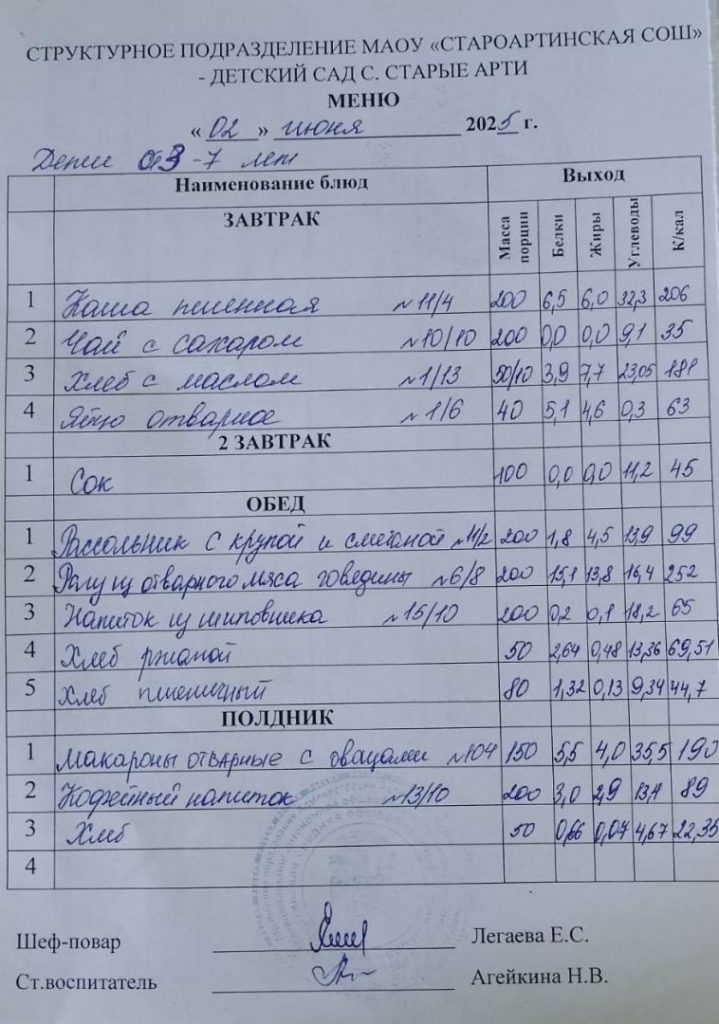 СТРУКТУРНОЕ ПОДРАЗДЕЛЕНИЕ МАОУ «СТАРОАРТИНСКАЯ СОШ»
- ДЕТСКИЙ САД С. СТАРЫЕ АРТИ
МЕНЮ
« 02 » июня 2025 г.
Дети от 3-7 лет
Наименование блюд Выход
ЗАВТРАК Масса порции Белки Жиры Углеводы К/кал
1 Каша пшенная №11/4 200 6,5 6,0 32,3 206
2 Чай с сахаром №10/10 200 0,0 0,0 9,1 35
3 Хлеб с маслом №1/13 50/10 3,9 7,7 23,05 181
4 Яйцо отварное №1/6 40 5,1 4,6 0,3 63
2 ЗАВТРАК
1 Сок 100 0,0 0,0 11,2 45
ОБЕД
1 Рассольник с крупой и сметаной №11/2 200 1,8 4,5 13,9 99
2 Рагу из отварного мяса говядины №6/8 200 15,1 13,8 16,4 252
3 Напиток из шиповника №15/10 200 0,2 0,1 18,2 65
4 Хлеб ржаной 50 2,64 0,48 13,36 69,51
5 Хлеб пшеничный 80 1,32 0,13 9,34 44,7
ПОЛДНИК
1 Макароны отварные с овощами №104 150 5,5 4,0 35,5 190
2 Кофейный напиток №13/10 200 3,0 2,9 13,4 89
3 Хлеб 50 0,66 0,07 4,67 22,35
4
Шеф-повар Легаева Е.С.
Ст.воспитатель Агейкина Н.В.